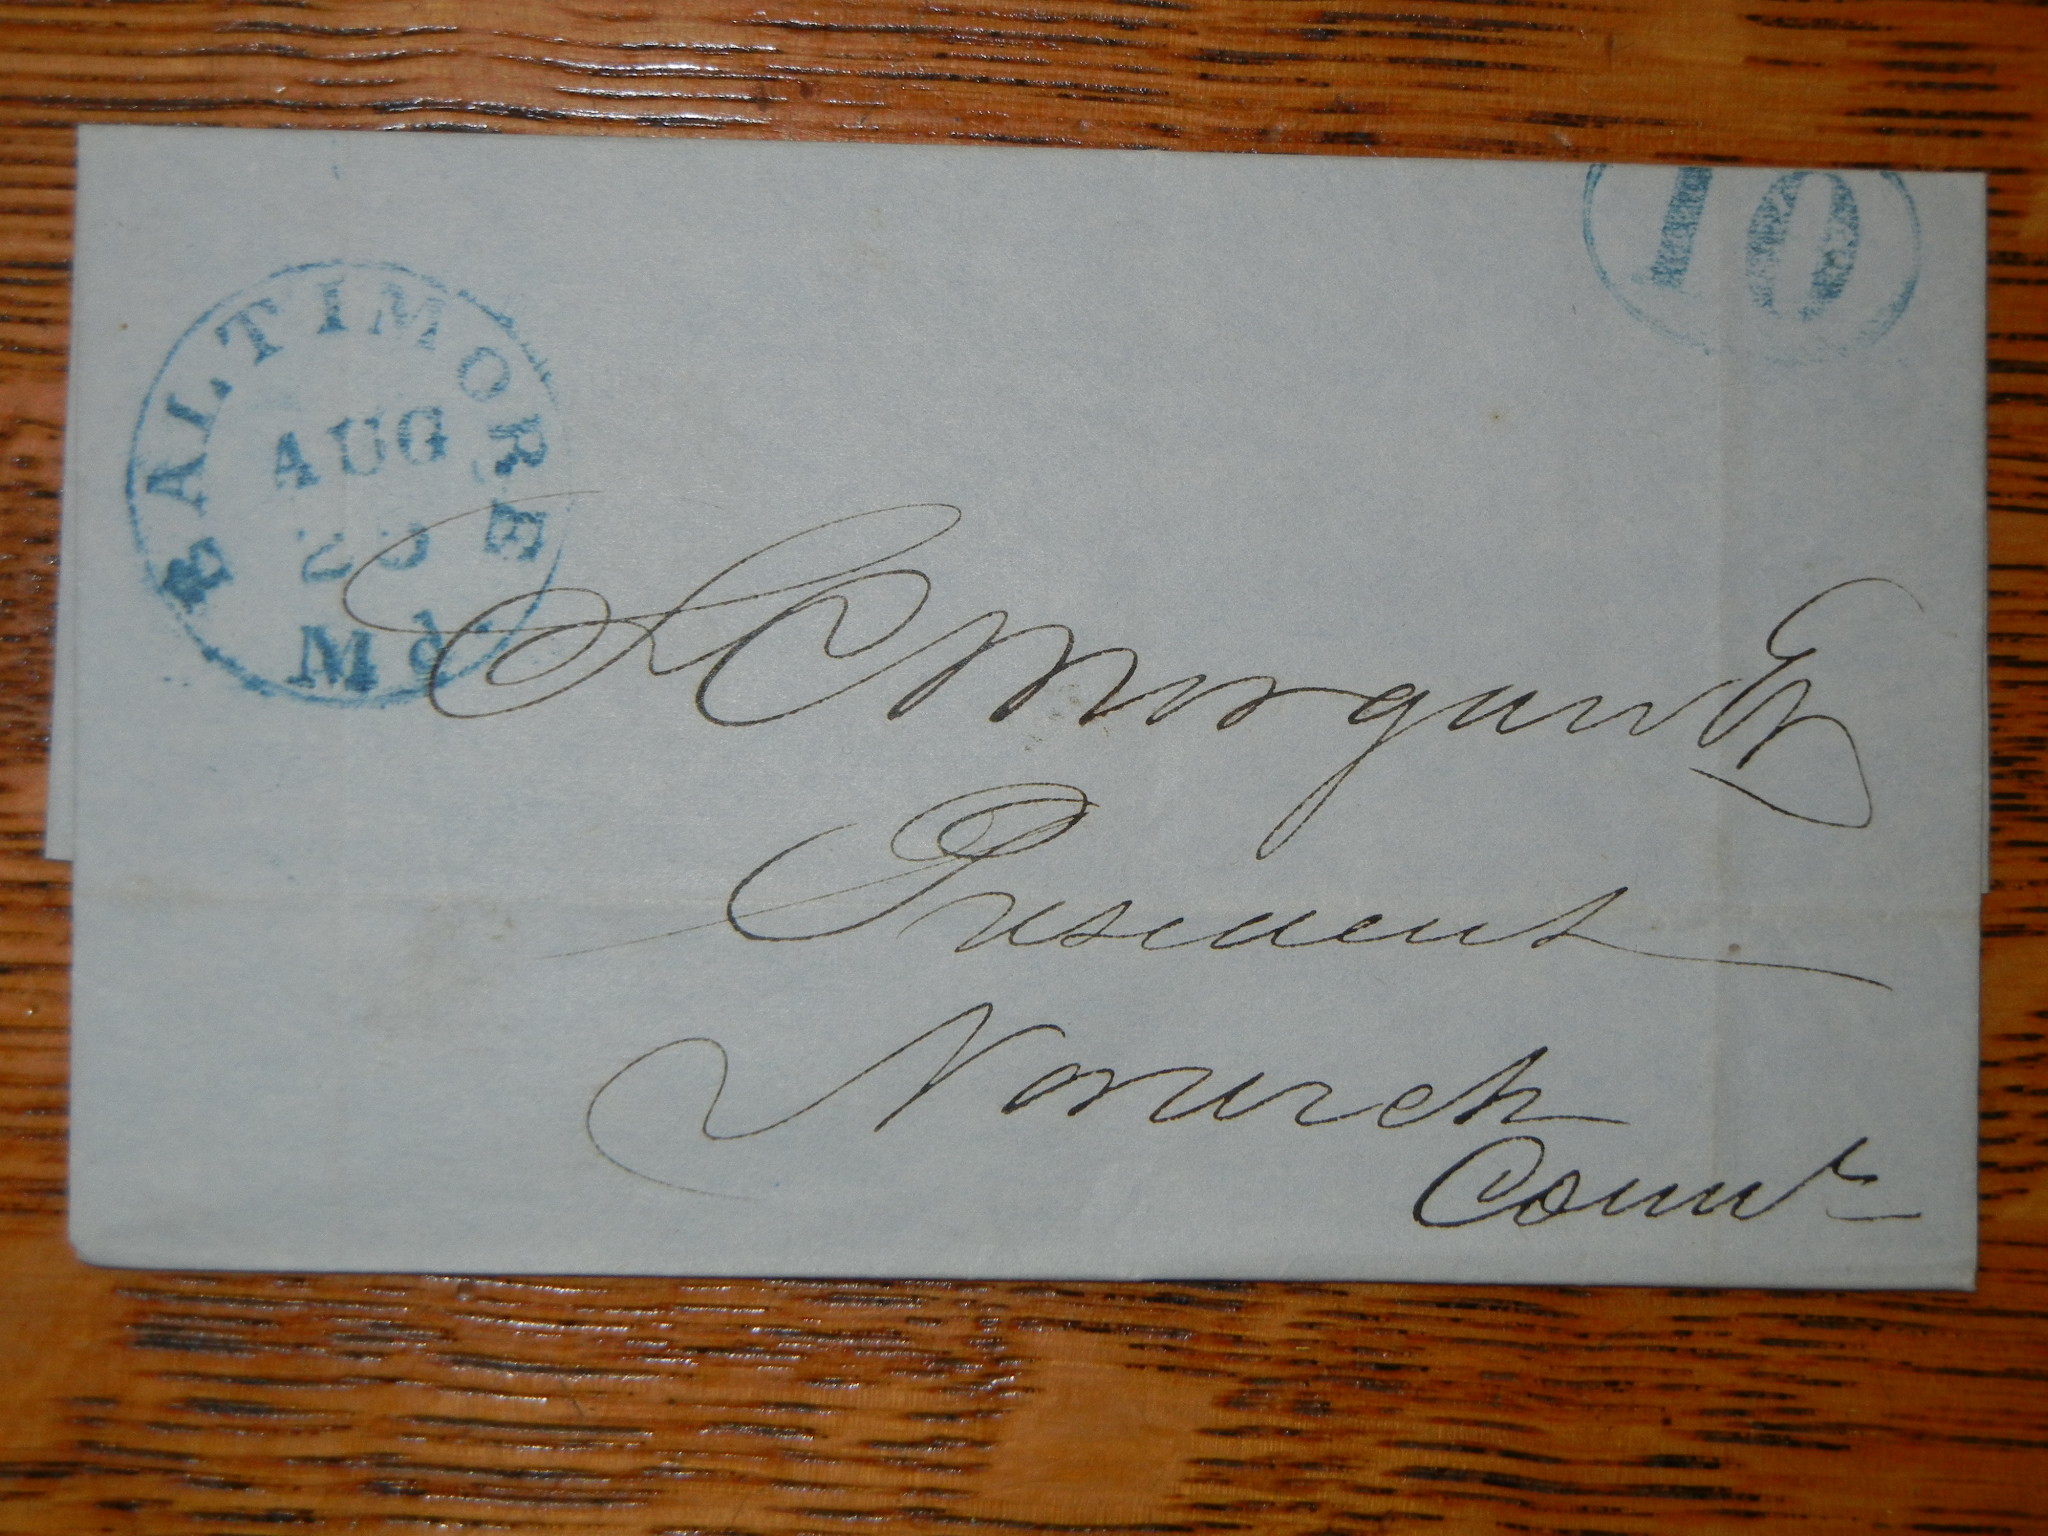 BALTIMORE
AUG
Md.
10
L C Morgan Esq
President
Norwich
Connt